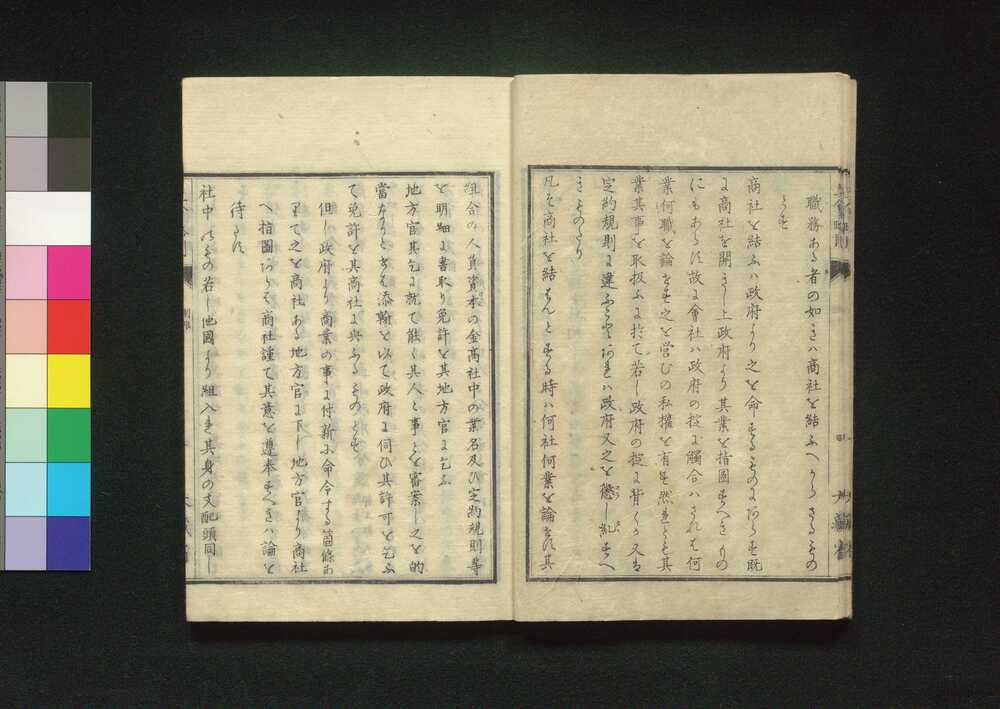 職務ある者の如きハ商社を結ふへからさるもの
とす
商社を結ふハ政府より之を命するものにあらす既
に商社を開きし上政府より其業を指圖すへきもの
にもあらす故に會社ハ政府の掟に觸合ハされは何
業何職を論せす之を営むの私權を有す然れとも其
業其事を取扱ふに於て若し政府の掟に背くか又は
定約規則に違ふことあれハ政府又之を懲し糺すへ
きものなり
凡そ商社を結はんとする時ハ何社何業を論せす其
組合の人員資本の金高社中の業名及ひ定約規則等
を明細に書取り免許を其地方官に乞ふ
地方官其乞に就て能く其人と事とを審案し之を的
當なりとせは添翰を以て政府に伺ひ其許可を乞ふ
て免許を其商社に與ふるものとす
但し政府より商業の事に付新に命令する箇條あ
りて之を商社ある地方官に下し地方官より商社
へ指圖あらは商社謹て其意を遵奉すへきハ論を
待たす
社中のもの若し他國より組入れ其身の支配頭同し